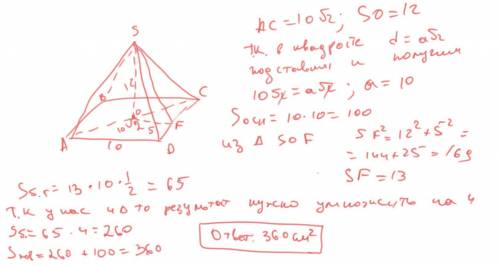 AC = 10√2 ; SO = 12
т.к. в квадрате d = a√2
подставим и получим
10√2 = a√2 ; a = 10
Sосн = 10·10 = 100
из Δ SOF
SF² = 12² + 5² =
= 144 + 25 = 169
SF = 13
S
12
B
C
O
10√2
5
F
A
10
D
Sб.г = 13 · 10 · 1/2 = 65
Т.к у нас 4 Δ то результат нужно умножить на 4
Sб = 65 · 4 = 260
Sпол = 260 + 100 = 360
Ответ. 360 см²